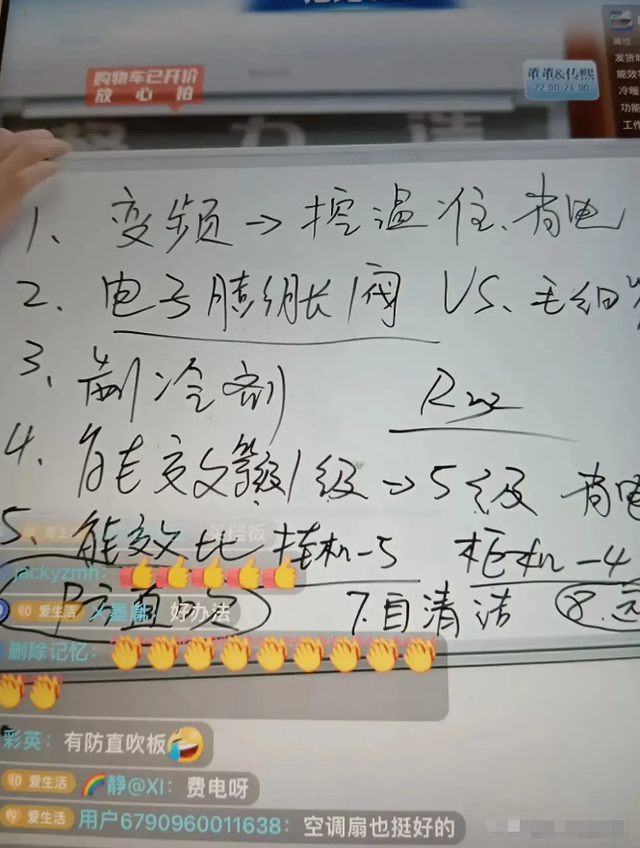 购物车已开价
放心拍
董董&传熙
22:00-24:00
属性
发货
能效
冷暖
功能
工作
1、变频→控温准、省电
2、电子膨胀阀 VS、毛细
3、制冷剂 R32
4、能效等级1级→5级 省电
5、能效比 挂机-5 柜机-4
防直吹 7.自清洁 8.
jackyzmh：👍👍👍👍👍
爱生活 好办法
删除记忆：👏👏👏👏👏👏👏👏👏
👏👏
彩英：有防直吹板🤣
爱生活 🌈静@XI：费电呀
爱生活 用户6790960011638：空调扇也挺好的